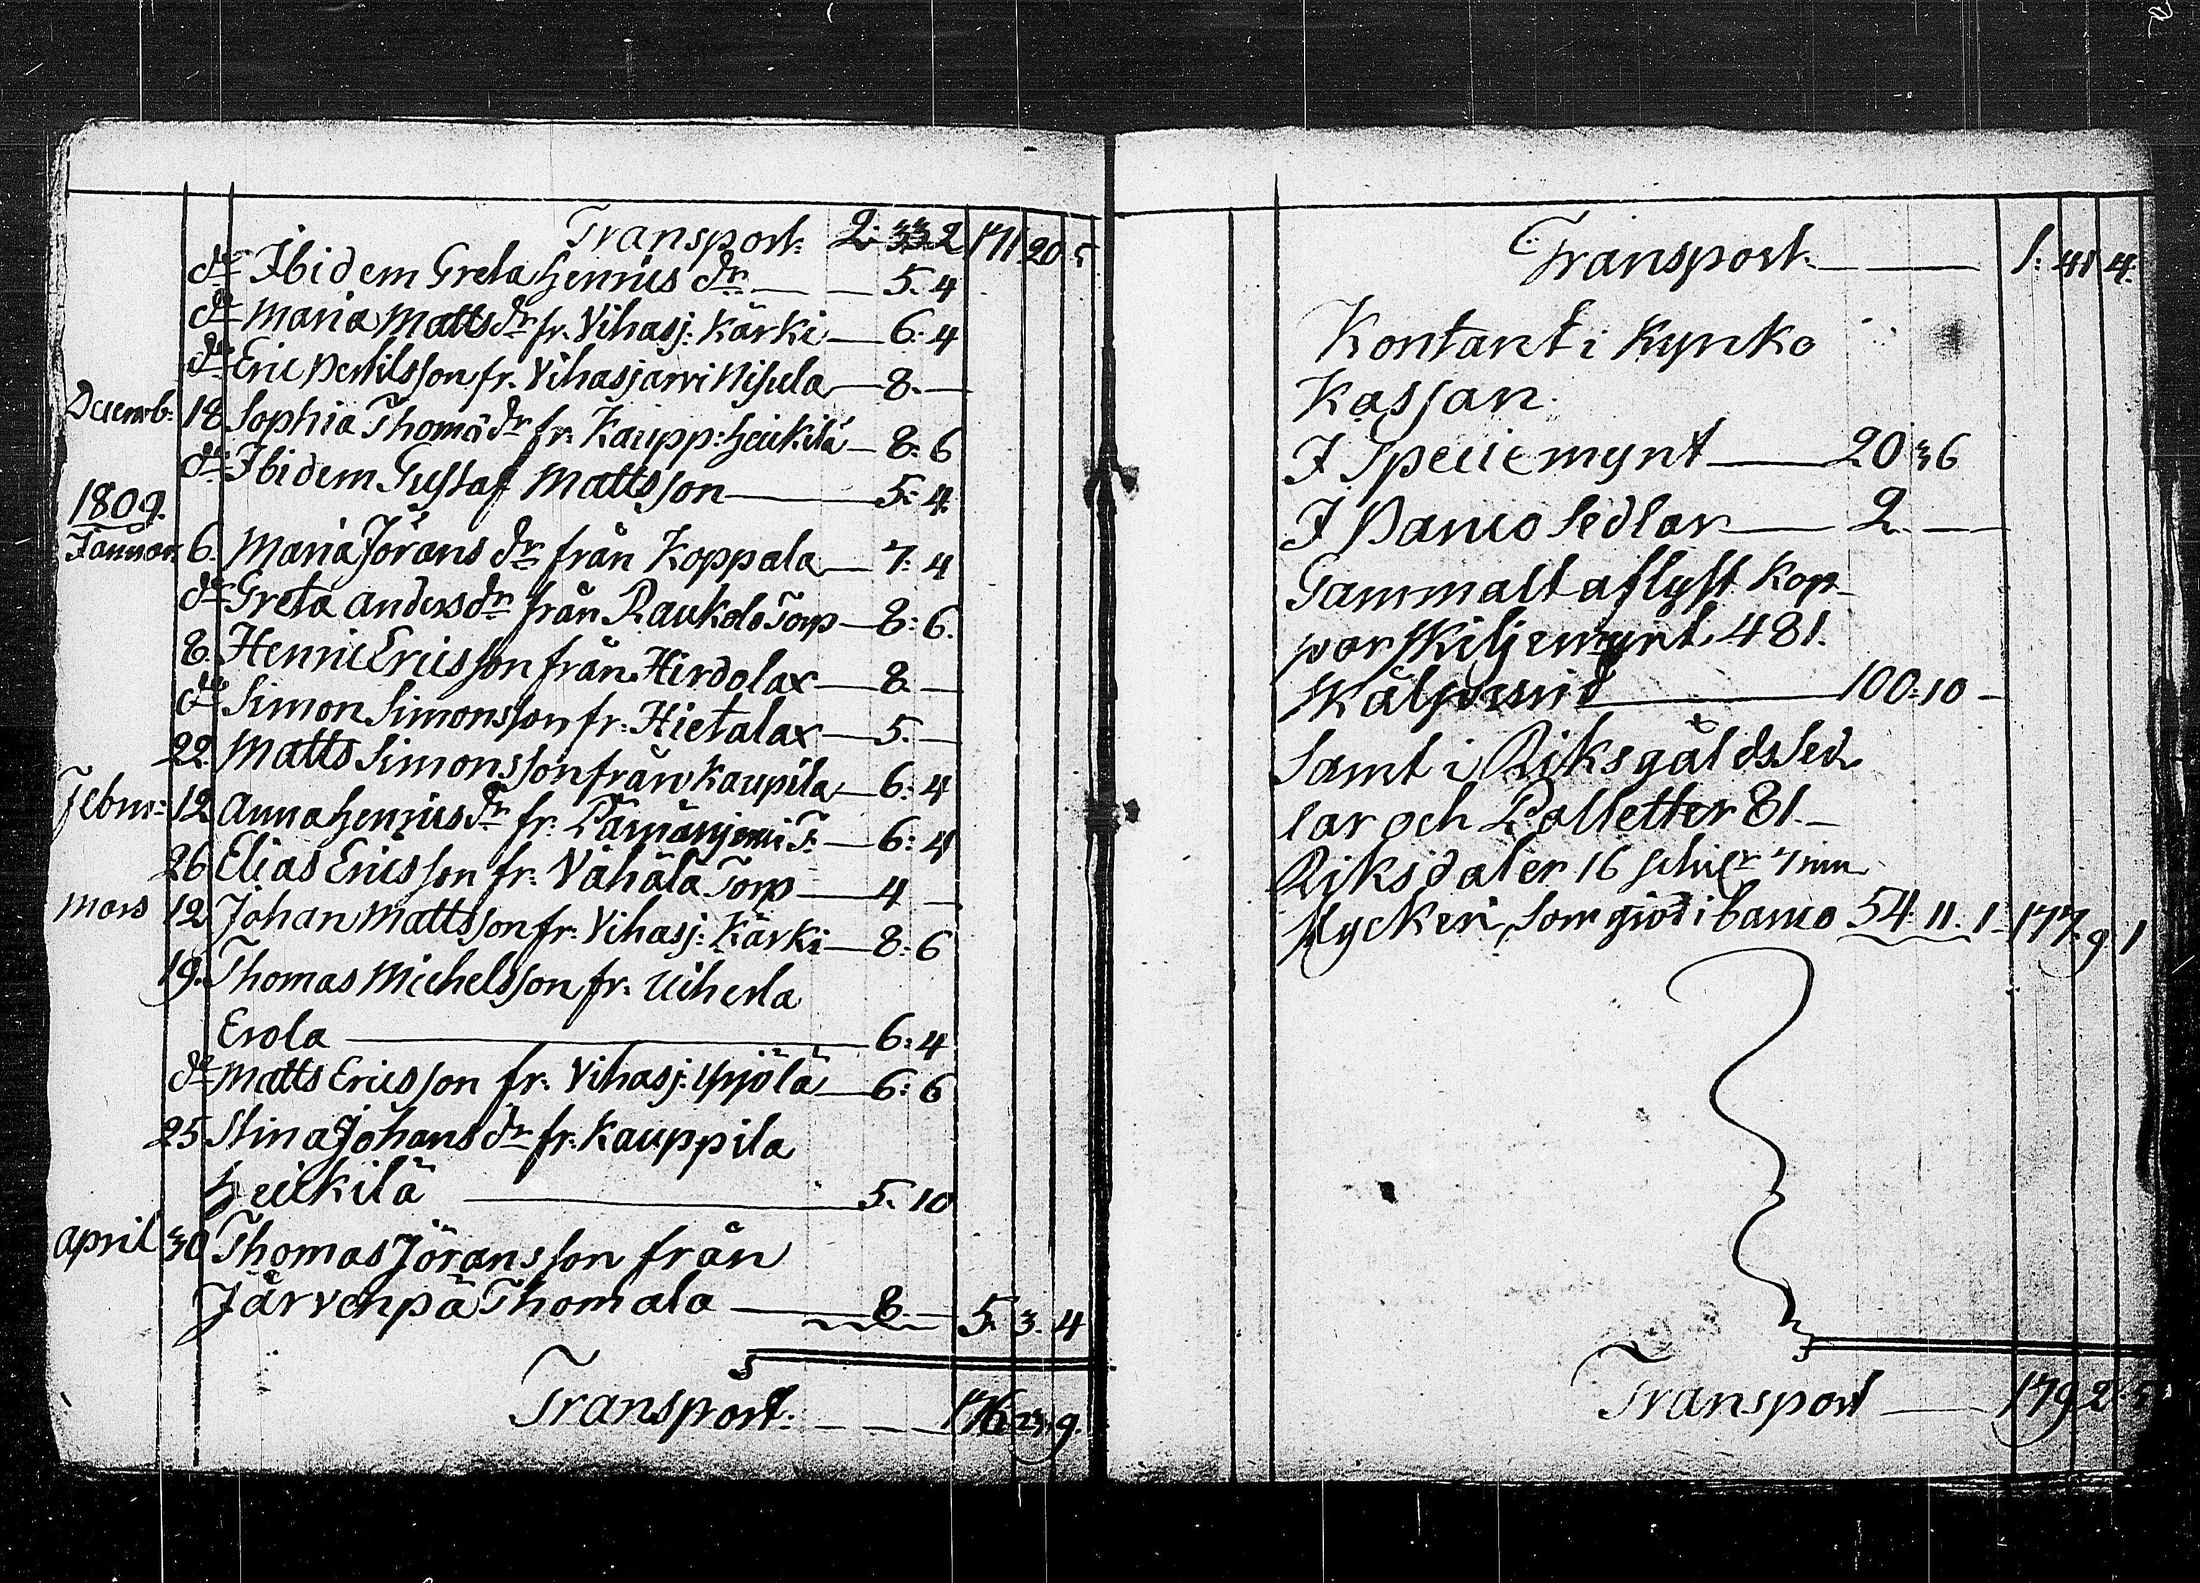 Transport. 2. 33. 2 171 20. 5
do Ibidem Greta Henrics dr — — 5. 4
do Maria Matts dr fr. Vihasj: Kärki — 6. 4
do Eric Bertilsson fr. Vihasjarvi Nisula — 8. —
Decemb. 18 Sophia Thomæ dr fr. Kaupp: Heickilä — 8. 6
do Ibidem Gustaf Mattsson — 5. 4.
1809.
Januar. 6. Maria Jörans dr från Koppala — 7. 4
do Greta Anders dr från Raukola Torp — 8: 6.
8. Henric Ericsson från Hirdolax — 8. —
do Simon Simonsson fr. Hietalax — 5. —
22. Matts Simonsson från Kaupila — 6: 4
Febru: 12 Anna Henrics dr fr. T. — 6: 4
26 Elias Ericsson fr. Vähälä Torp — 4 —
Mars 12 Johan Mattsson fr. Vihasj: Kärki — 8: 6
19. Thomas Michelsson fr. Uiherla
Erola — 6: 4
do Matts Ericsson fr. Vihasj: Yrjölä — 6: 6
25 Stina Johans dr fr. Kauppila
Heickilä — 5. 10
April 30 Thomas Jöransson från
Järvenpä Thomala — 8. — 5. 3. 4
Transport. — — 176. 23. 9.
Transport — — 1: 41 4.
Kontant i Kyrko
Kassan.
I Speciemynt — 20 36
I Banco Sedlar — 2 —
Gammalt aflyst Kop
par Skiljemynt 481.
skålpund — 100. 10 —
Samt i Riksgälds Sed
lar och Polletter 81. —
Riksdaler 16 schilr 7 run
stycken, som giör i banco 54. 11. 1. 177. 9 1
Transport — 179 2. 5